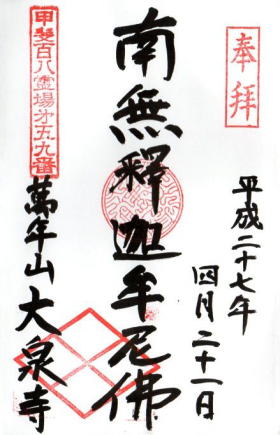 奉拝
平成二十七年
四月二十一日
南無釋迦牟尼佛
甲斐百八霊場第五九番
萬年山大泉寺